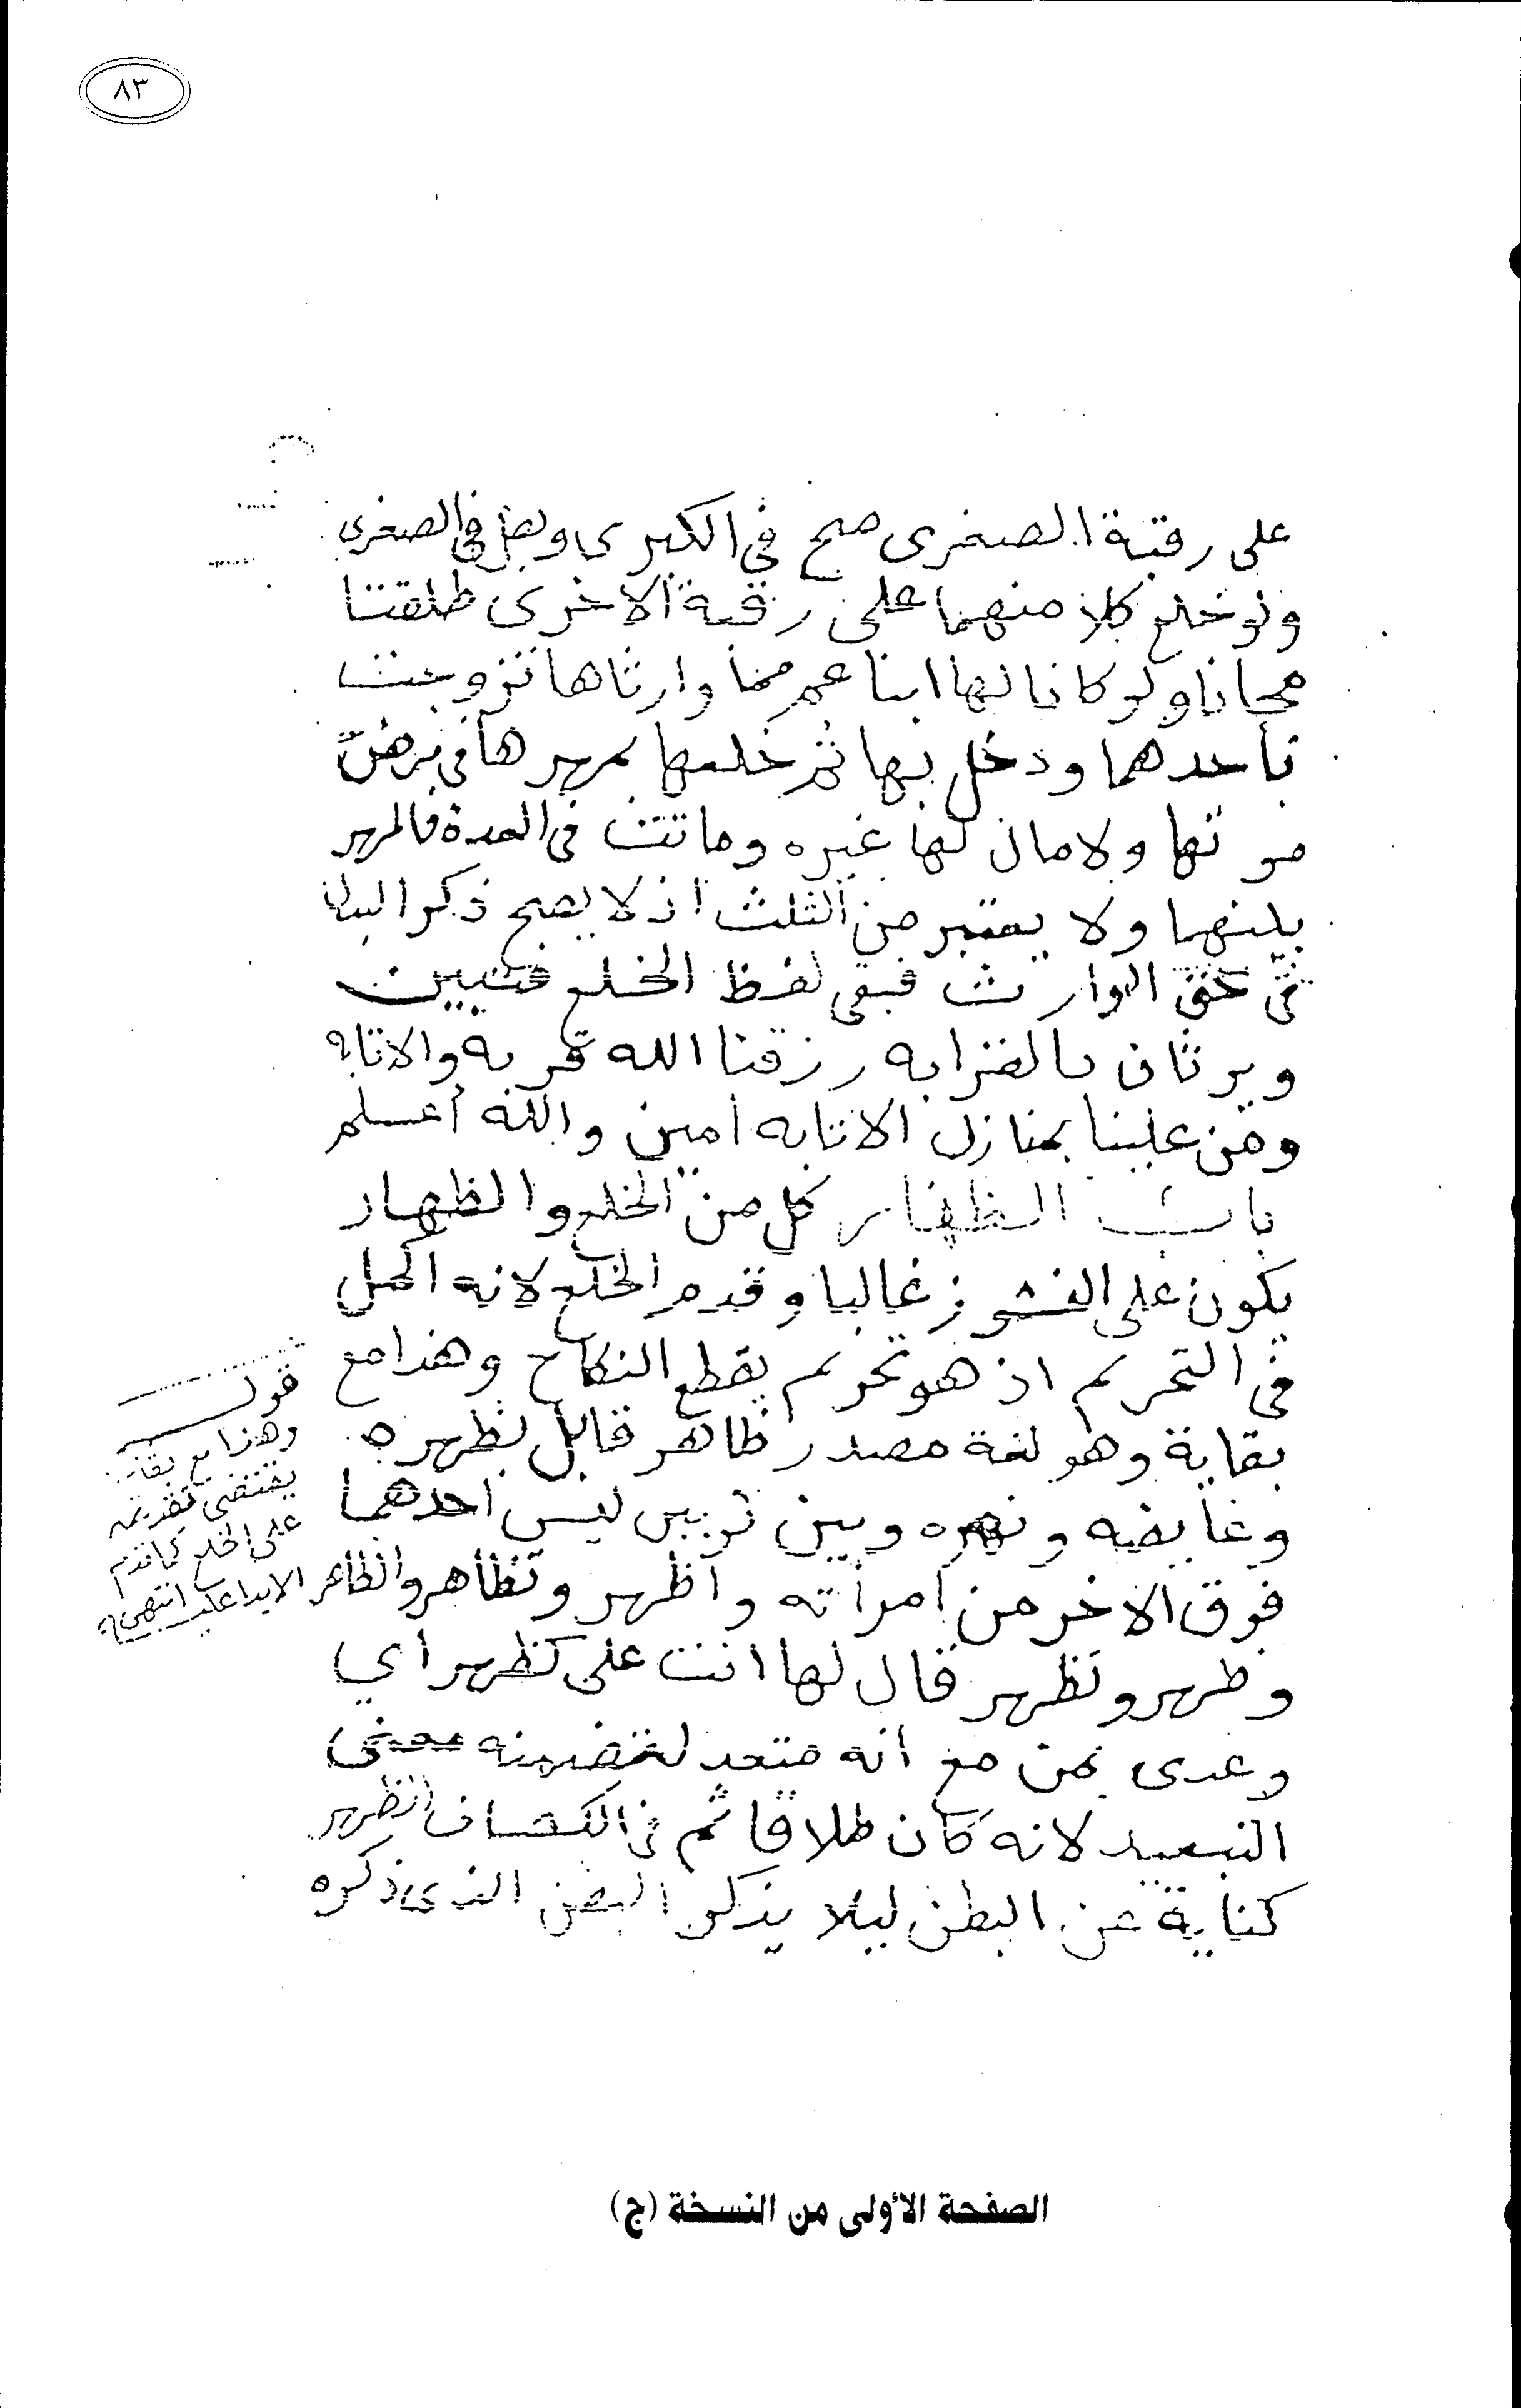 ٨٣
على رقبة الصغرى صح في الكبرى وبطل في الصغرى
ولو خلع كلا منهما على رقبة الاخرى طلقتا
مجانا ولو كانا لها ابنا عم مخا وارثاها تزوجت
باحدهما ودخل بها ثم خلعها بمهرها في مرض
موتها ولا مال لها غيره وماتت في العدة فالمهر
بينهما ولا يعتبر من الثلث اذ لا يصح ذكر البدل
في حق الوارث فبقى لفظ الخلع فتبين
ويرثان بالقرابه رزقنا الله قربه والاثابه
ومن علينا بمنازل الانابه امين والله أعلم
باب الظهار كل من الخلع والظهار
يكون على النشوز غالبا وقدم الخلع لانه اكمل
في التحريم اذ هو تحريم يقطع النكاح وهذا مع
بقاية وهو لغة مصدر ظاهر قابل بظهره
وغايضه ونصره وبين ثوبين لبس احدهما
فوق الاخر ومن امرأته واظهر وتظاهر واظاهر
وظهر وتظهر قال لها انت على كظهر اي
وعدى بمن مع انه متعد لتضمنه معنى
التبعيد لانه كان طلاقا ثم في الكشاف الظهر
كناية عن البطن ليلا يذكر البطن الذى ذكره
قوله
وهذا مع بقائه
يقتضى تقديمه
على الخلع كما قدم
الايداعليه انتهى
الصفحة الأولى من النسخة (ج)